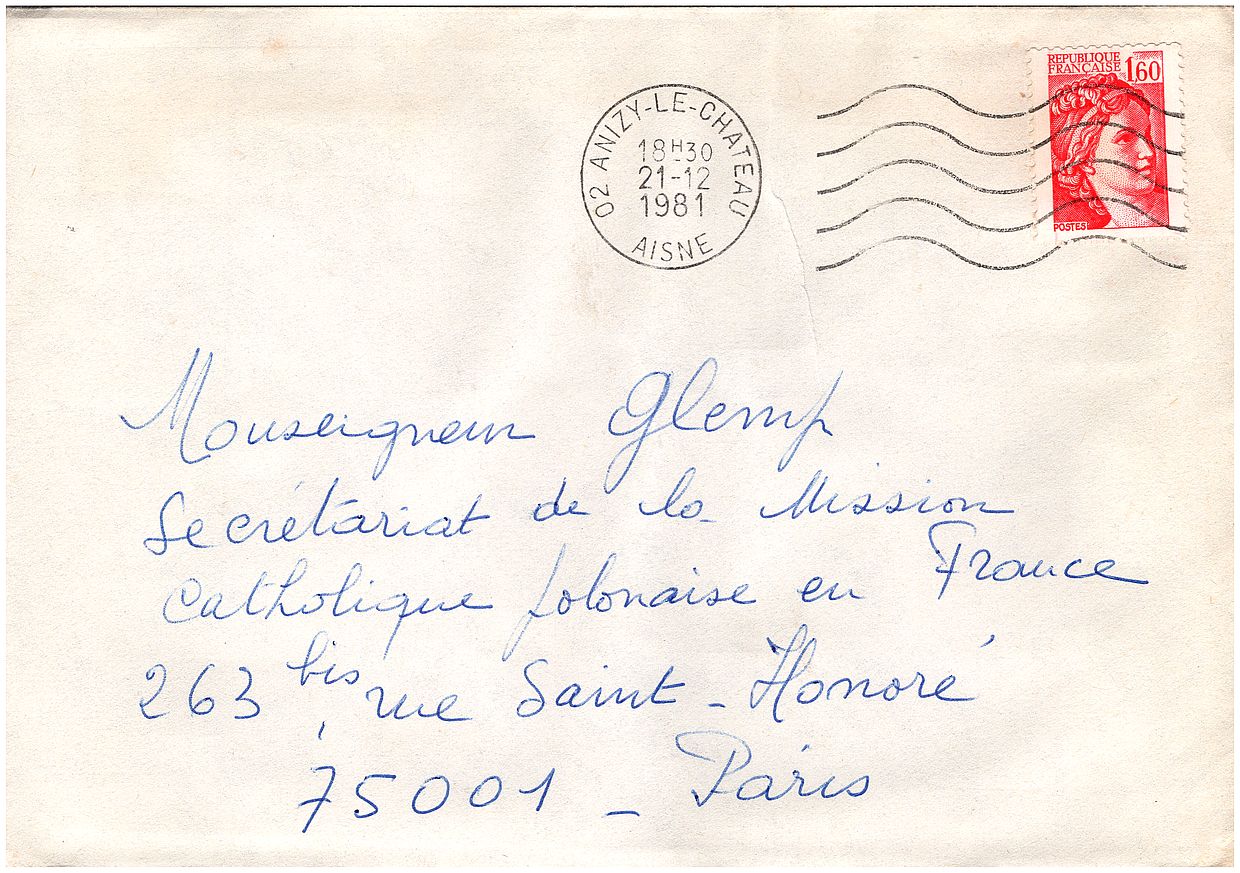 REPUBLIQUE
FRANÇAISE
1,60
POSTES
02 ANIZY-LE-CHATEAU
18H30
21-12
1981
AISNE
Monseigneur Glemp
Secrétariat de la Mission
Catholique polonaise en France
263 bis, rue Saint-Honoré
75001 - Paris